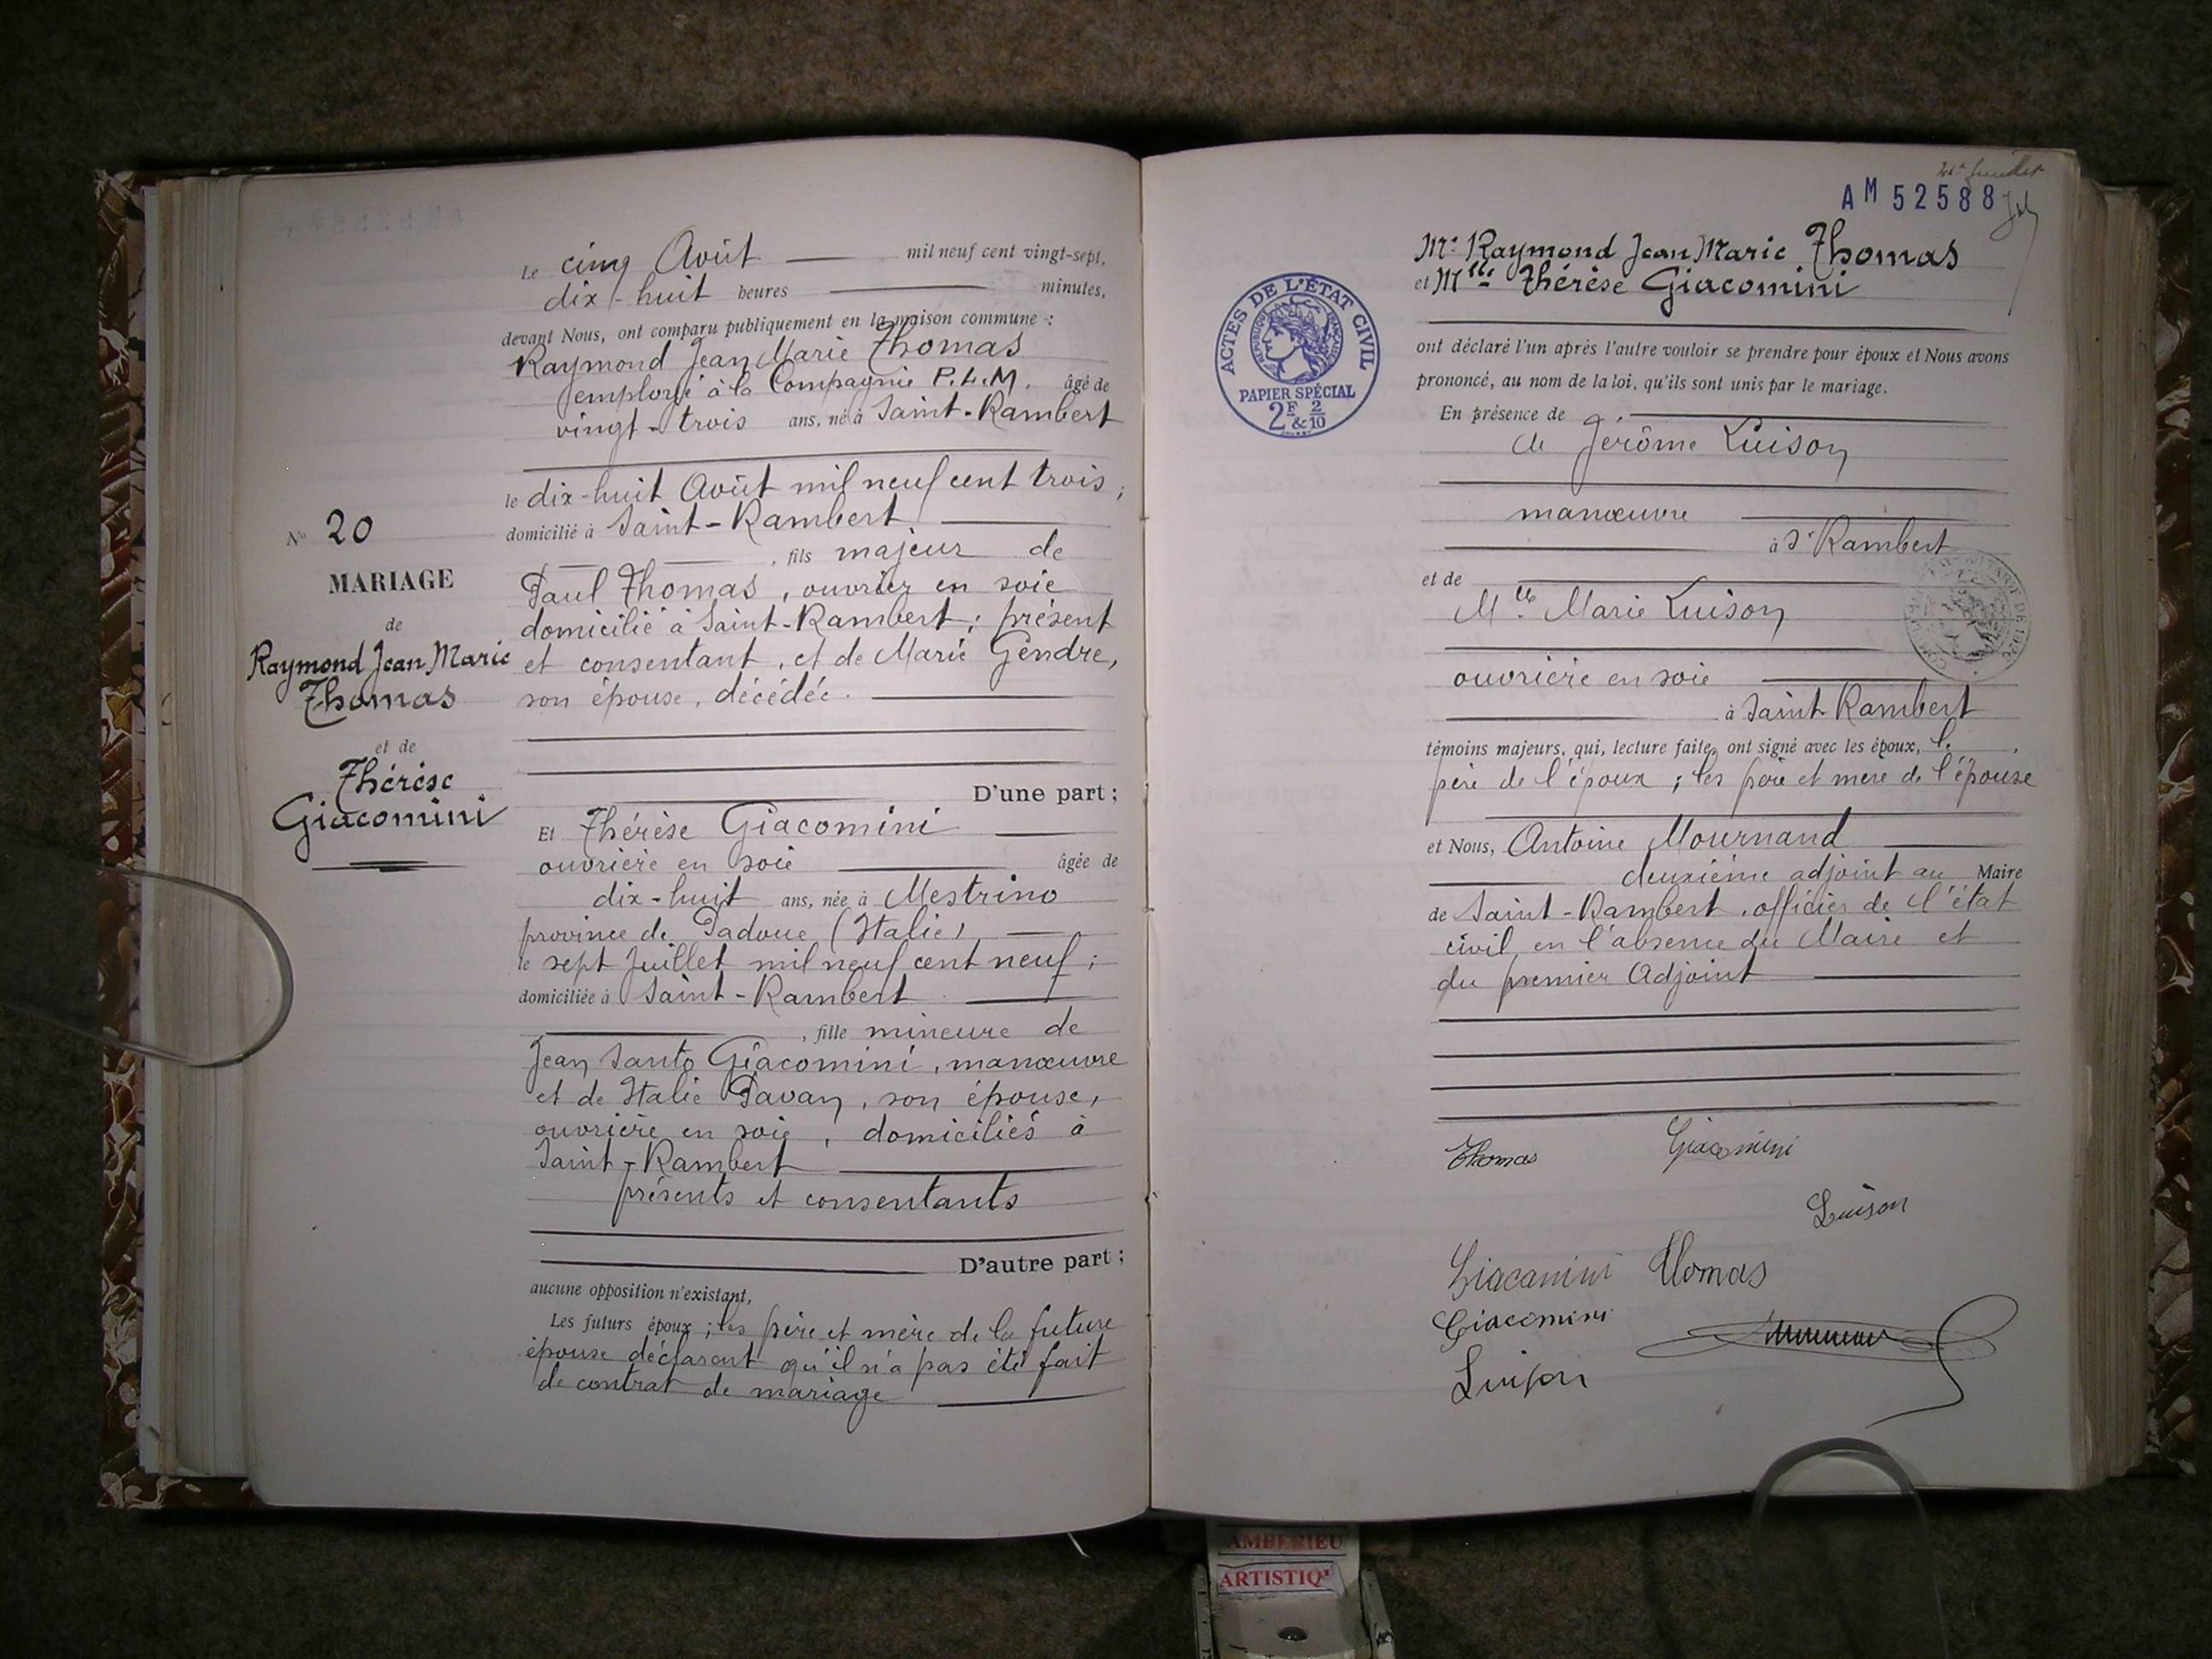 Le cinq Août mil neuf cent vingt-sept,
dix-huit heures minutes,
devant Nous, ont comparu publiquement en la maison commune :
Raymond Jean Marie Thomas
employé à la Compagnie P.L.M. âgé de
vingt-trois ans, né à Saint-Rambert
le dix-huit Août mil neuf cent trois ;
domicilié à Saint-Rambert
, fils majeur de
Paul Thomas, ouvrier en soie
domicilié à Saint-Rambert ; présent
et consentant, et de Marie Gendre,
son épouse, décédée.
D'une part ;
Et Thérèse Giacomini
ouvrière en soie âgée de
dix-huit ans, née à Mestrino
province de Padoue (Italie)
le sept Juillet mil neuf cent neuf ;
domiciliée à Saint-Rambert
, fille mineure de
Jean Santo Giacomini, manœuvre
et de Italie Pavan, son épouse,
ouvrière en soie, domiciliés à
Saint-Rambert
présents et consentants
D'autre part ;
aucune opposition n'existant,
Les futurs époux ; les père et mère de la future
épouse déclarent qu'il n'a pas été fait
de contrat de mariage
N° 20
MARIAGE
de
Raymond Jean Marie
Thomas
et de
Thérèse
Giacomini
AM 52588
Mr Raymond Jean Marie Thomas
et Mlle Thérèse Giacomini
ont déclaré l'un après l'autre vouloir se prendre pour époux et Nous avons
prononcé, au nom de la loi, qu'ils sont unis par le mariage.
En présence de
de Jérôme Luison
manœuvre
à St Rambert
et de
Mlle Marie Luison
ouvrière en soie
à Saint-Rambert
témoins majeurs, qui, lecture faite, ont signé avec les époux, le
père de l'époux ; les père et mère de l'épouse
et Nous, Antoine Mournand
deuxième adjoint au Maire
de Saint-Rambert, officier de l'état
civil, en l'absence du Maire et
du premier Adjoint
Thomas Giacomini
Luison
Giacomini Thomas
Giacomini
Luison
ACTES DE L'ÉTAT CIVIL
RÉPUBLIQUE FRANÇAISE
PAPIER SPÉCIAL
2F & 2/10
AMBERIEU
ARTISTIQ'